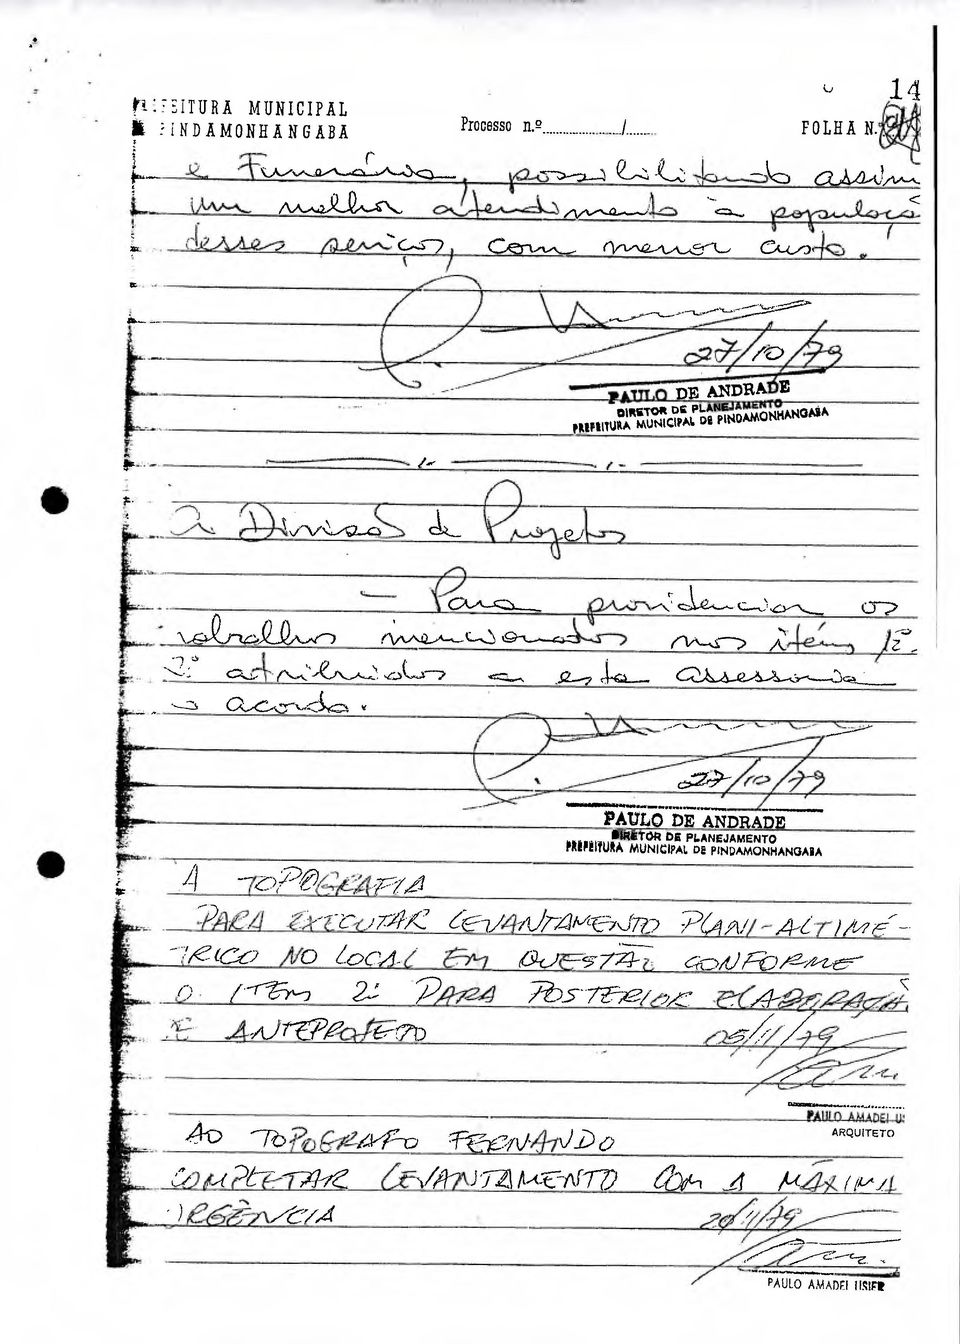 14
EITURA MUNICIPAL
PINDAMONHANGABA
Processo n.º ........ / ......
FOLHA N.
e Funerária, possibilitando assim
um melhor atendimento à populaçã
desses serviços, com menor custo.
27/10/79
PAULO DE ANDRADE
DIRETOR DE PLANEJAMENTO
PREFEITURA MUNICIPAL DE PINDAMONHANGABA
À Divisão de Projetos
- Para providenciar os
trabalhos mencionados nos itens 1º
2º atribuidos a esta assessoria
acordo.
27/10/79
PAULO DE ANDRADE
DIRETOR DE PLANEJAMENTO
PREFEITURA MUNICIPAL DE PINDAMONHANGABA
A TOPOGRAFIA
PARA EXECUTAR LEVANTAMENTO PLANI-ALTIMÉ-
TRICO NO LOCAL EM QUESTÃO CONFORME
O ITEM 2º PARA POSTERIOR ELABORAÇÃ
E ANTEPROJETO
05/11/79
PAULO AMADEI U
ARQUITETO
AO TOPOGRAFO FERNANDO
COMPLETAR LEVANTAMENTO COM A MÁXIMA
URGÊNCIA
20/11/79
PAULO AMADEI USIER